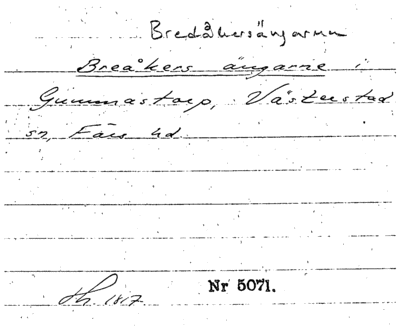 Bredåkersängarna
Breåkers ängarne i
Gummastorp, Västerstad
sn, Färs hd
1817 Nr 5071.